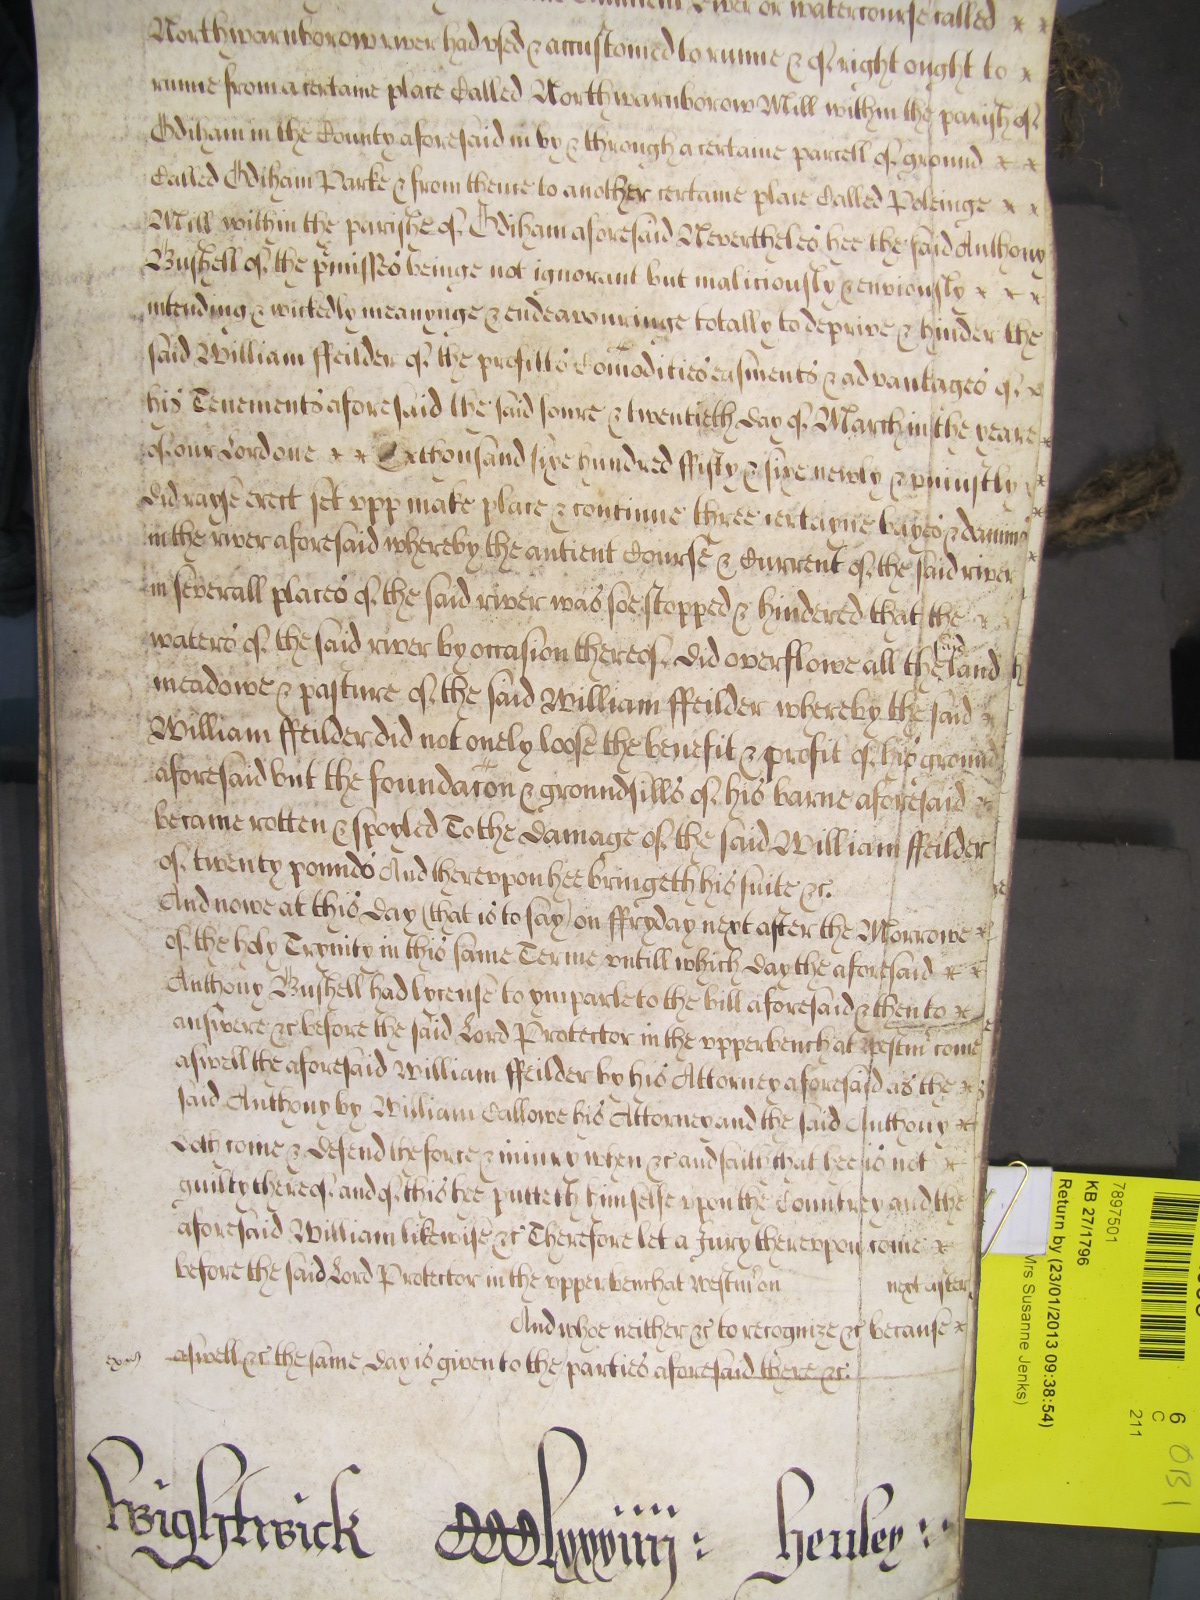 River or watercourse called
Northwarnborow river had used & accustomed to runne & of right ought to
runne from a certaine place Called Northwarnborow Mill within the parish of
Odiham in the County aforesaid in by & through a certaine parcell of ground
Called Odiham Parke & from thence to another certaine place Called Poleinge
Mill within the parishe of Odiham aforesaid Neverthelesś hee the said Anthony
Bushell of the p̄missēs beinge not ignorant but maliciously & enviously
intending & wickedly meanynge & endeavouringe totally to deprive & hinder the
said William ffeilder of the profitts Com̄odities easments & advantages of
his Tenements aforesaid the said foure & twentieth day of March in the yeare
of our Lord one thousand sixe hundred ffifty & sixe newly & uniustly
did rayse erect sett upp make place & continue three certayne bayes & damms
in the river aforesaid whereby the antient Course & Current of the said river
in severall places of the said river was soe stopped & hindered that the
waters of the said river by occasion thereof did overflowe all the said land
meadowe & pasture of the said William ffeilder whereby the said
William ffeilder did not onely loose the benefit & profit of his ground
aforesaid but the foundac̄on & groundsills of his barne aforesaid
became rotten & spoyled To the damage of the said William ffeilder
of twenty pounds And thereupon hee bringeth his suite &c.
And nowe at this day (that is to say) on ffryday next after the Morrowe
of the holy Trynity in this same Terme untill which day the aforesaid
Anthony Bushell had lycense to ymparle to the bill aforesaid & then to
answere &c before the said Lord Protector in the upper bench at Westm̄ come
aswell the aforesaid William ffeilder by his Attorney aforesaid as the
said Anthony by William Callowe his Attorney and the said Anthony
doth come & defend the force & iniury when &c and saith that hee is not
guilty thereof and of this hee putteth himselfe upon the Countrey and the
aforesaid William likewise &c Therefore let a Jury thereupon come
before the said Lord Protector in the upper bench at Westm̄ on next after
And whoe neither &c to recognize &c because
aswell &c the same day is given to the parties aforesaid there &c.
Wightwick CCClxxxiiii : henley :
7897501
KB 27/1796
Return by (23/01/2013 09:38:54)
Mrs Susanne Jenks)
6
C
211